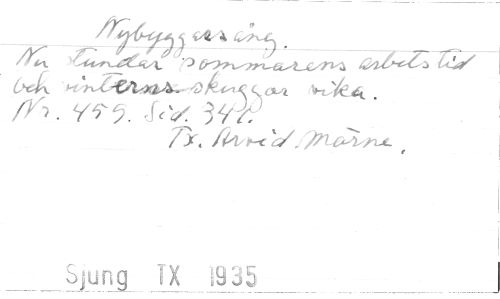 Nybyggaresång.
Nu stundar sommarens arbetstid
och vinterns skuggor vika.
Nr. 459. Sid. 341.
Tx. Arvid Mörne.
Sjung TX 1935